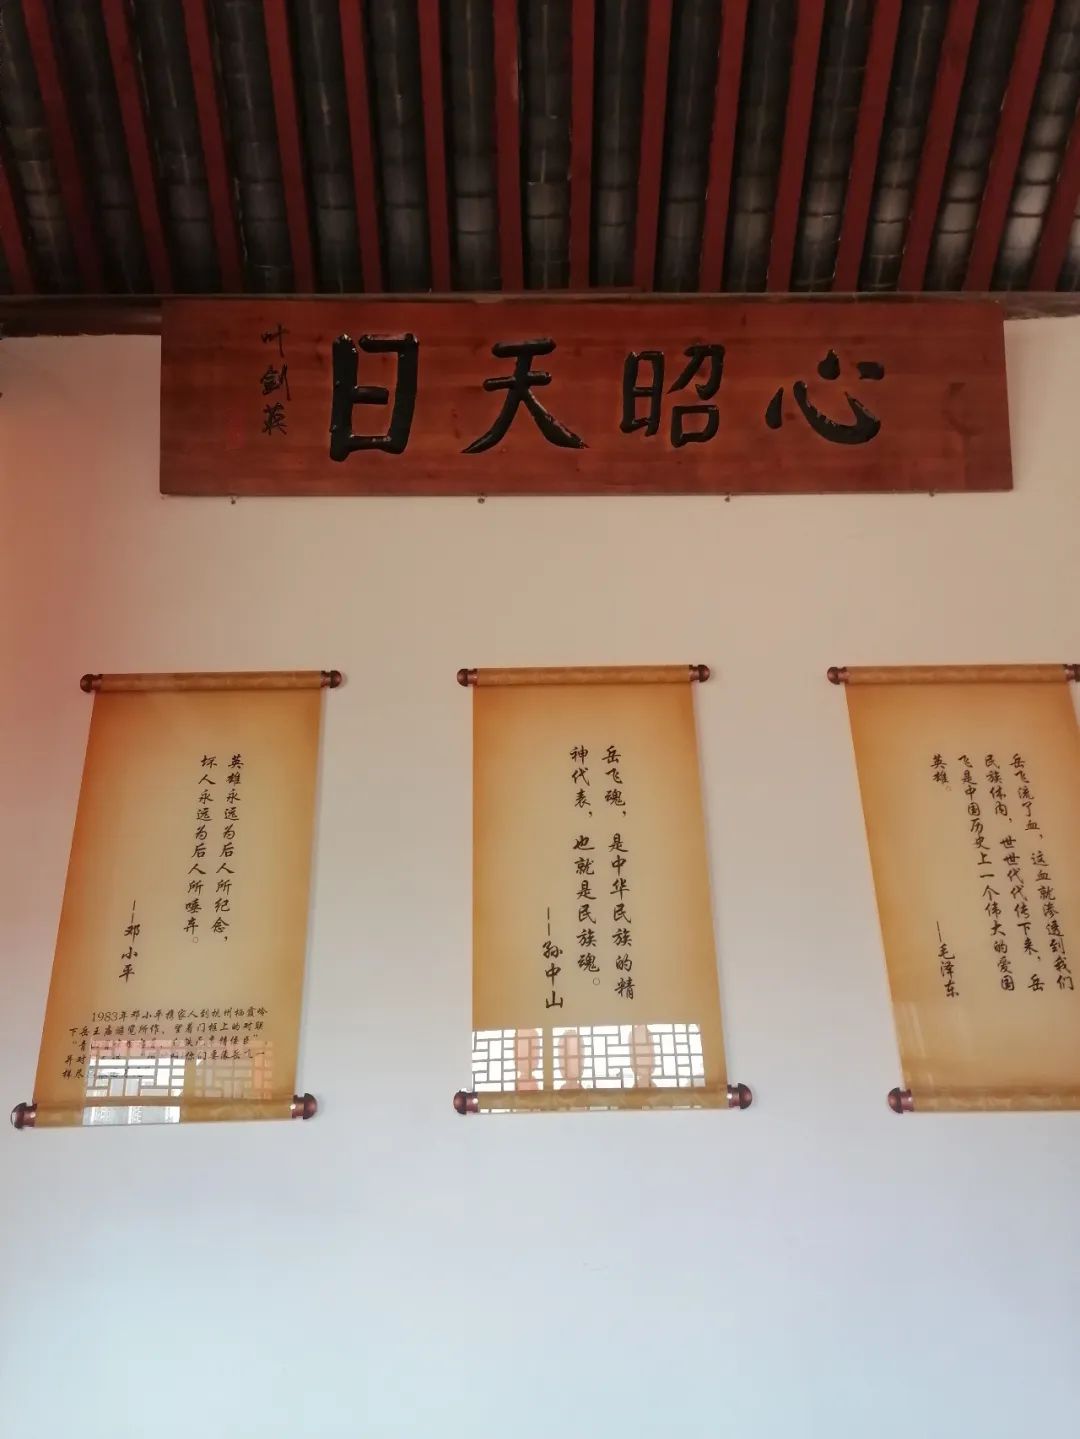 心昭天日
叶剑英
岳飞流了血，这血就渗透到我们
民族体内，世世代代传下来，岳
飞是中国历史上一个伟大的爱国
英雄。
——毛泽东
岳飞魂，是中华民族的精
神代表，也就是民族魂。
——孙中山
英雄永远为后人所纪念，
坏人永远为后人所唾弃。
——邓小平
1983年邓小平携家人到杭州栖霞岭
下岳王庙游览所作，望着门框上的对联
“青
并对
样尽